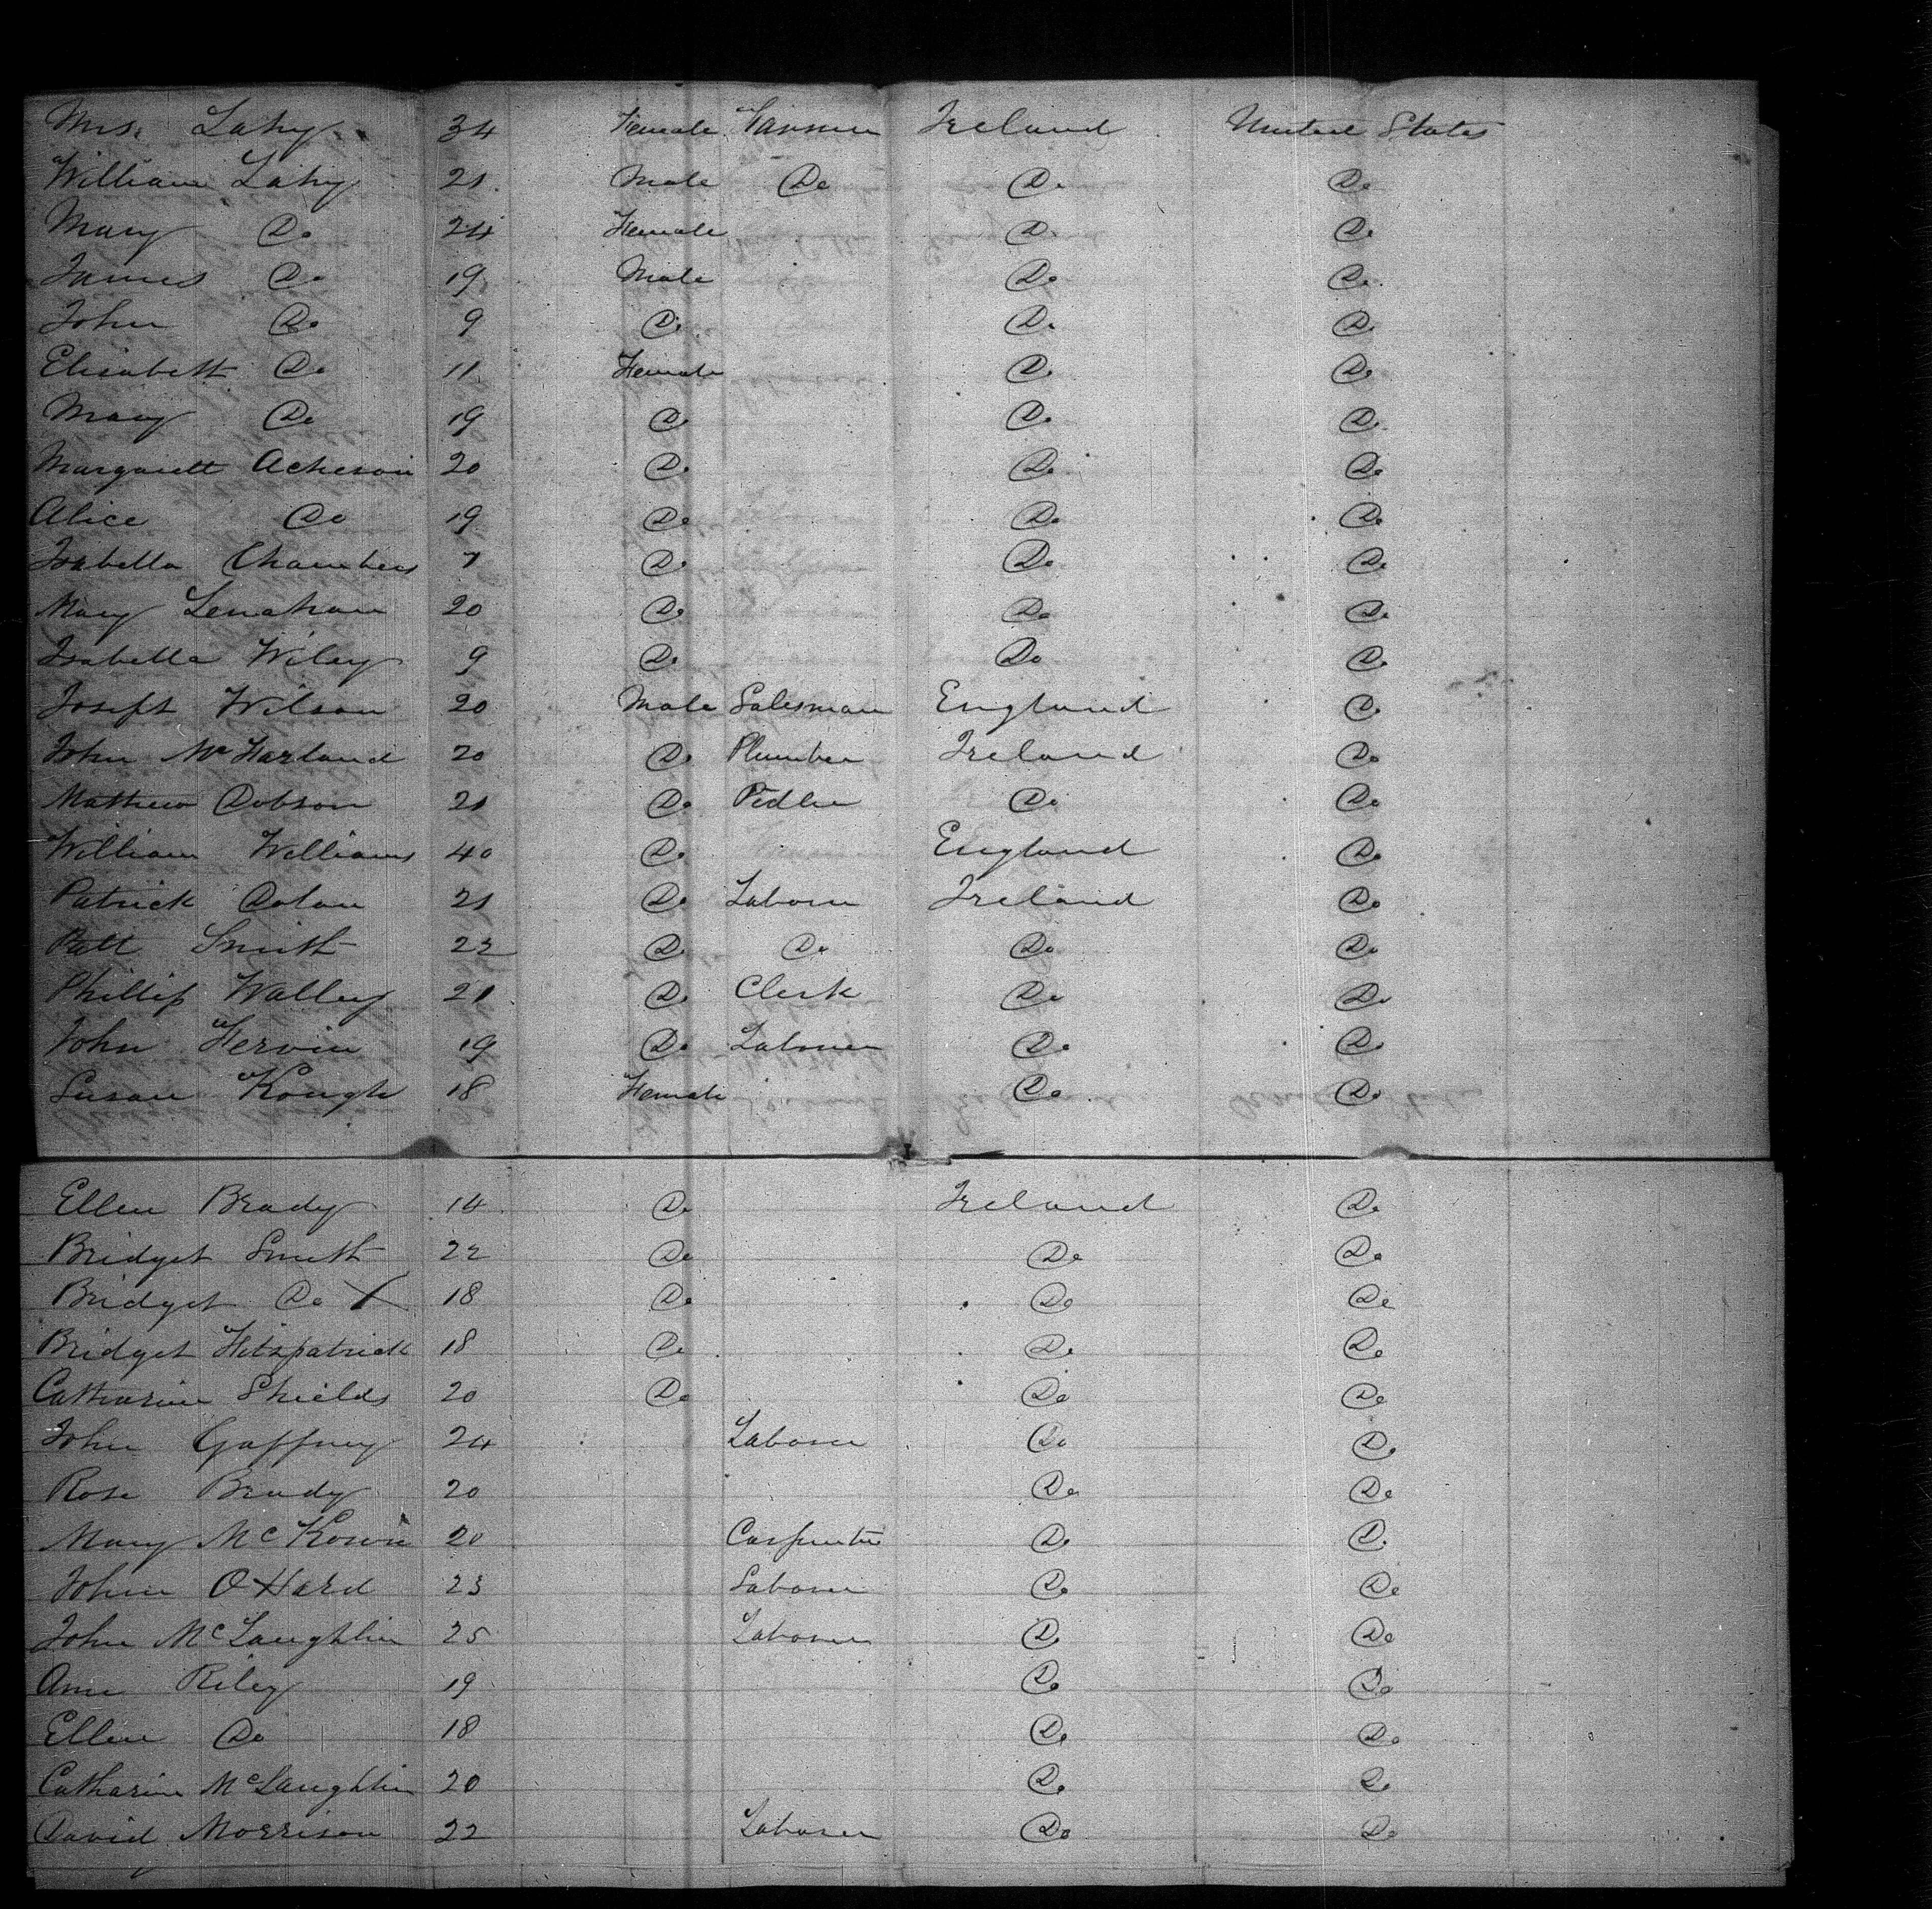 Mrs. Lahy 34 Female Farmer Ireland United States
William Lahy 21 Male Do Do Do
Mary Do 24 Female Do Do
James Do 19 Male Do Do
John Do 9 Do Do Do
Elisabett Do 11 Female Do Do
Mary Do 19 Do Do Do
Margarett Acheson 20 Do Do Do
Alice Do 19 Do Do Do
Isabella Chambers 7 Do Do Do
Mary Lenahan 20 Do Do Do
Isabella Wiley 9 Do Do Do
Joseph Wilson 20 Male Salesman England Do
John McFarland 20 Do Plumber Ireland Do
Mathew Dobson 21 Do Pedler Do Do
William Williams 40 Do England Do
Patrick Dolan 21 Do Laborer Ireland Do
Patt Smith 22 Do Do Do Do
Phillip Walley 21 Do Clerk Do Do
John Fervin 19 Do Laborer Do Do
Susan Kough 18 Female Do Do
Ellen Brady 14 Do Ireland Do
Bridget Smith 22 Do Do Do
Bridget Do X 18 Do Do Do
Bridget Fitzpatrick 18 Do Do Do
Catharine Shields 20 Do Do Do
John Gaffney 24 Laborer Do Do
Rose Brady 20 Do Do
Mary McKown 20 Carpenter Do Do
John O Hard 23 Laborer Do Do
John McLaughlin 25 Laborer Do Do
Ann Riley 19 Do Do
Ellen Do 18 Do Do
Catharine McLaughlin 20 Do Do
David Morrison 22 Laborer Do Do